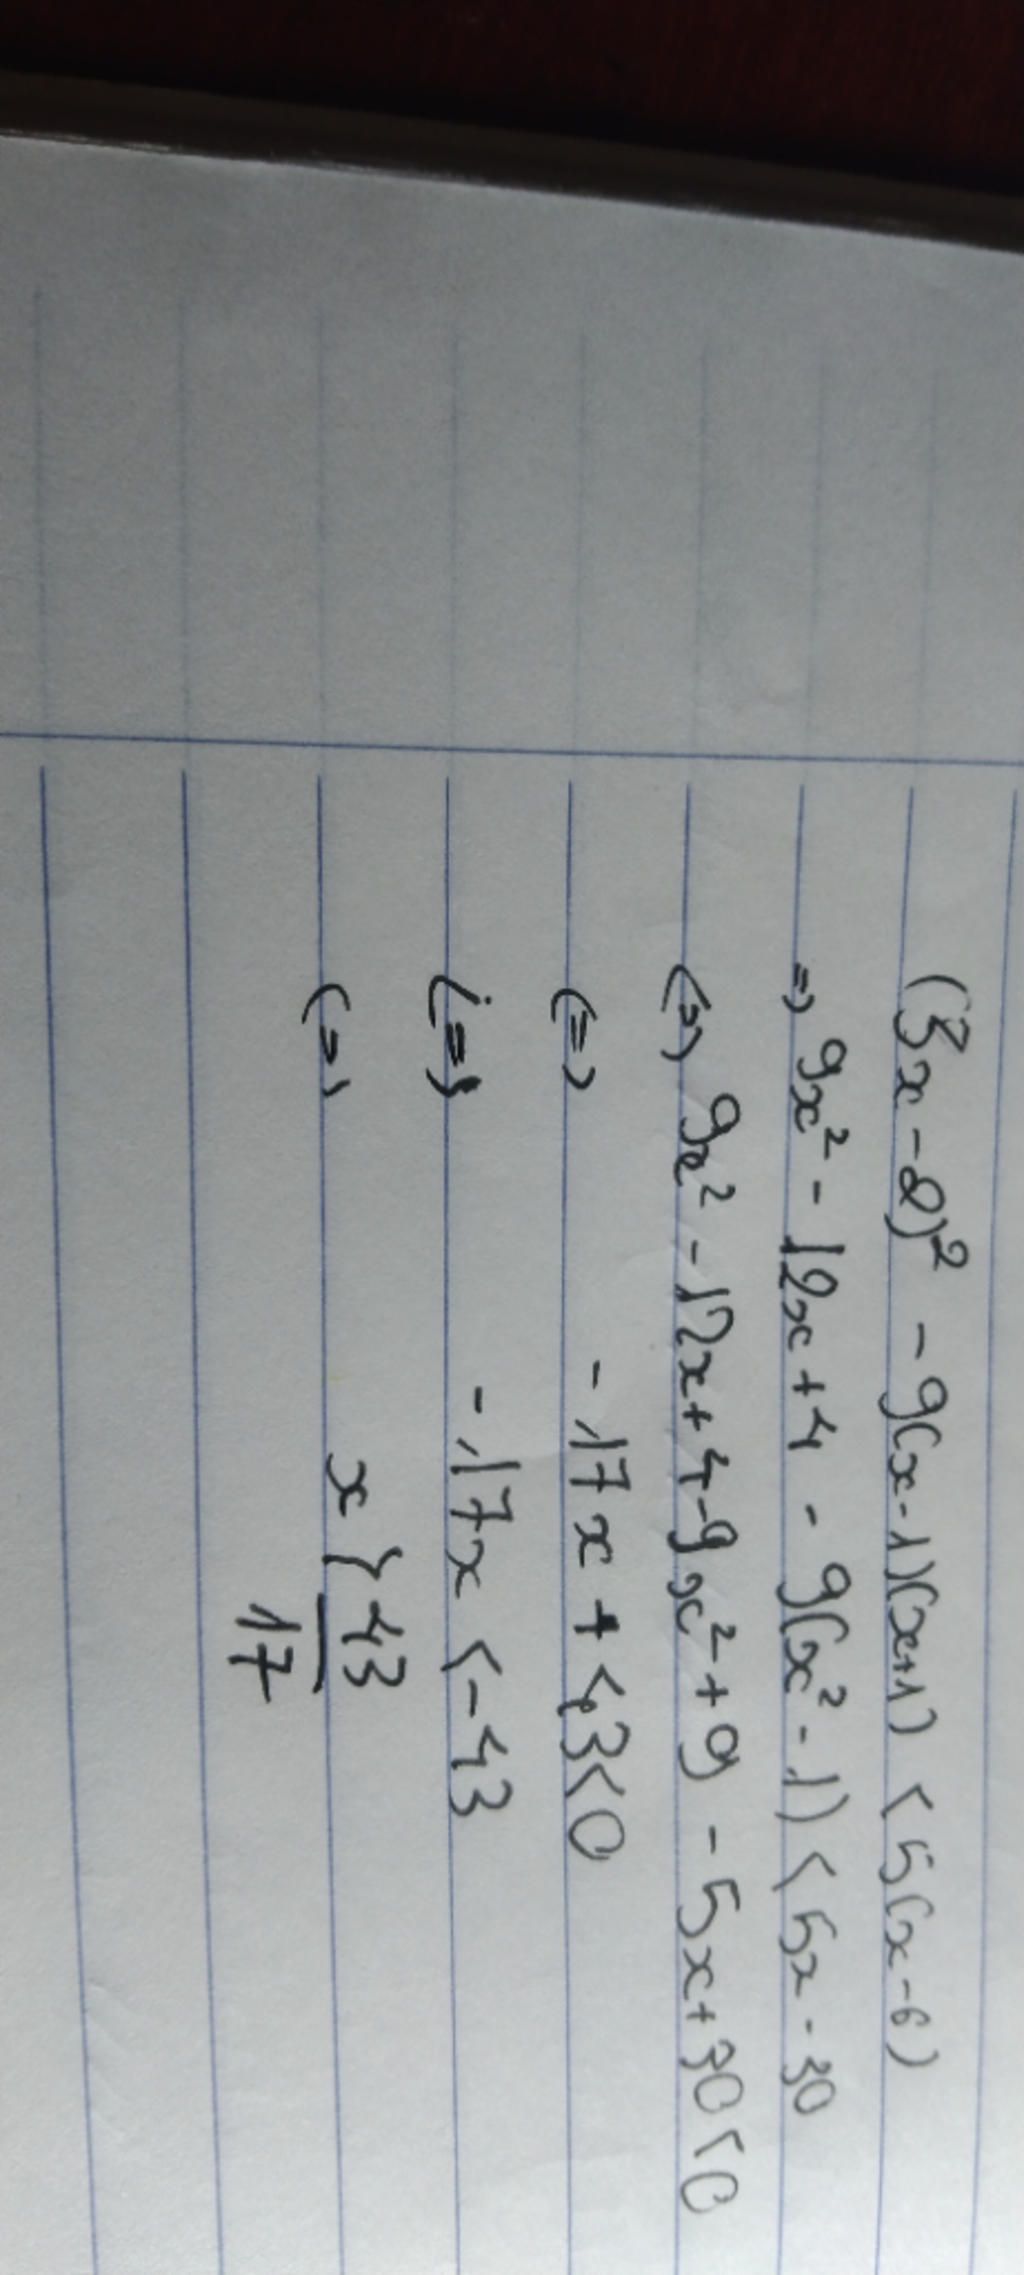 (3x-2)² - 9(x-1)(x+1) < 5(x-6)
=> 9x² - 12x + 4 - 9(x² - 1) < 5x - 30
<=> 9x² - 12x + 4 - 9x² + 9 - 5x + 30 < 0
<=> - 17x + 43 < 0
<=> - 17x < - 43
<=> x > 43/17